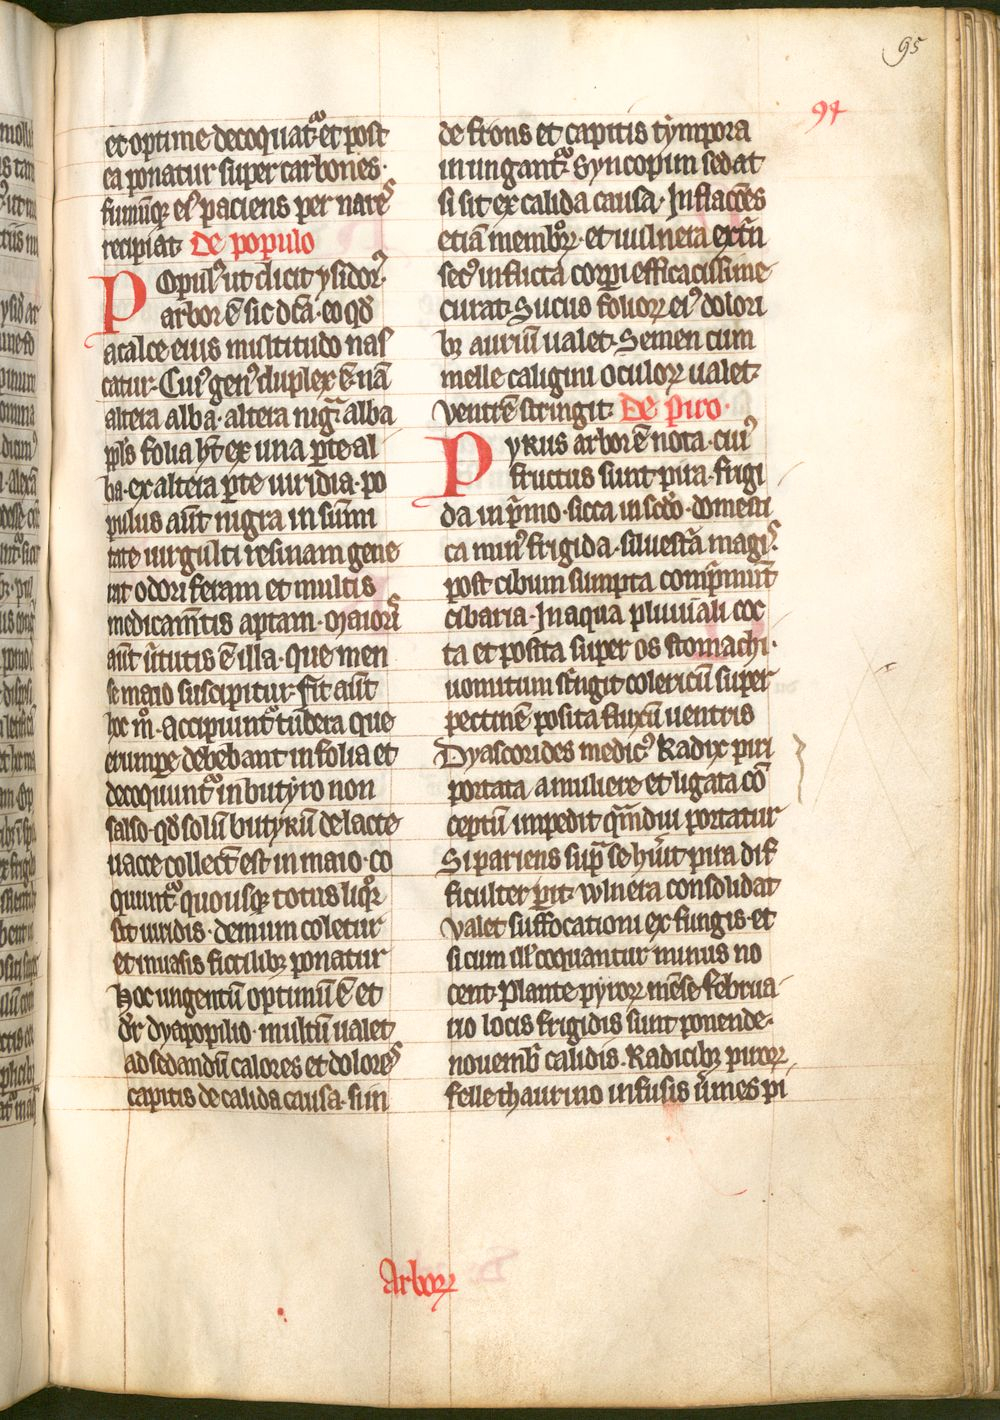 95
94
et optime decoquat᷑ et post
ea ponatur super carbones·
fumūqꝫ eiꝰ paciens per nares
recipiat· De populo
Populꝰ ut dicit ysidorꝰ·
arbor ē sic dc̄a· eo qđ
a calce eius multitudo nas
catur· Cuiꝰ genꝰ duplex ē· nā
altera alba· altera nigᷓ· alba
ppl̓s folia hꝫ ex una ꝑte al
ba· ex altera ꝑte uiridia· po
pulus aūt nigra in sūmi
tate uirgulti resinam gene
rat odoriferam et multis
medicam̄tis aptam· maioris
aūt ūtutis ē illa· que men
se maio suscipitur· fit aūt
hoc mͦ· accipiunt᷑ tubera que
erumꝑe debebant in folia et
decoquunt᷑ in butyro non
salso· qđ solū butyrū de lacte
uacce collect̄ est in maio· co
quunt᷑ quousqꝫ totus liqͦr
sit uiridis· demum coletur
et in uasis fictilibꝫ ponatur
hoc ungentū optimū ē et
dr̄ dyapopilio· multū ualet
ad sedandū calores et dolores
capitis de calida causa· sun
de frons et capitis tympora
inungant᷑· Syncopim sedat
si sit ex calida causa· Inflacc̄es
etiā membroꝝ· et uulnera extᷓn
secꝰ inflicta corpi efficacissime
curat· Sucus folioꝝ eiꝰ dolori
bꝫ auriū ualet· Semen cum
melle caligini oculoꝝ ualet·
ventrē stringit· De piro·
Pyrus arbor ē nota· cuiꝰ
fructus sunt pira· frigi
da in p̄mo· sicca in scđo· domesti
ca minꝰ frigida· siluestᷓ magis·
post cibum sumpta comp̄munt
cibaria· In aqua pluuiali coc
ta et posita super os stomachi·
uomitum stͥngit colericū super
pectinē posita fluxū uentris
Dyascorides medicꝰ Radix piri
portata a muliere et ligata cō
ceptū impedit qᷓmdiu portatur
Si pariens supᷓ se hūit pira dif
ficulter parit· wlnera consolidat
valet suffocationi ex fungis· et
si cum ill̓ coquantur minus no
cent· Plante pyroꝝ mēse februa
rio locis frigidis sunt ponende·
nouemb̄ calidis· Radicibꝫ piroꝝ
felle thaurino infusis ūmes pi
Arboꝝ